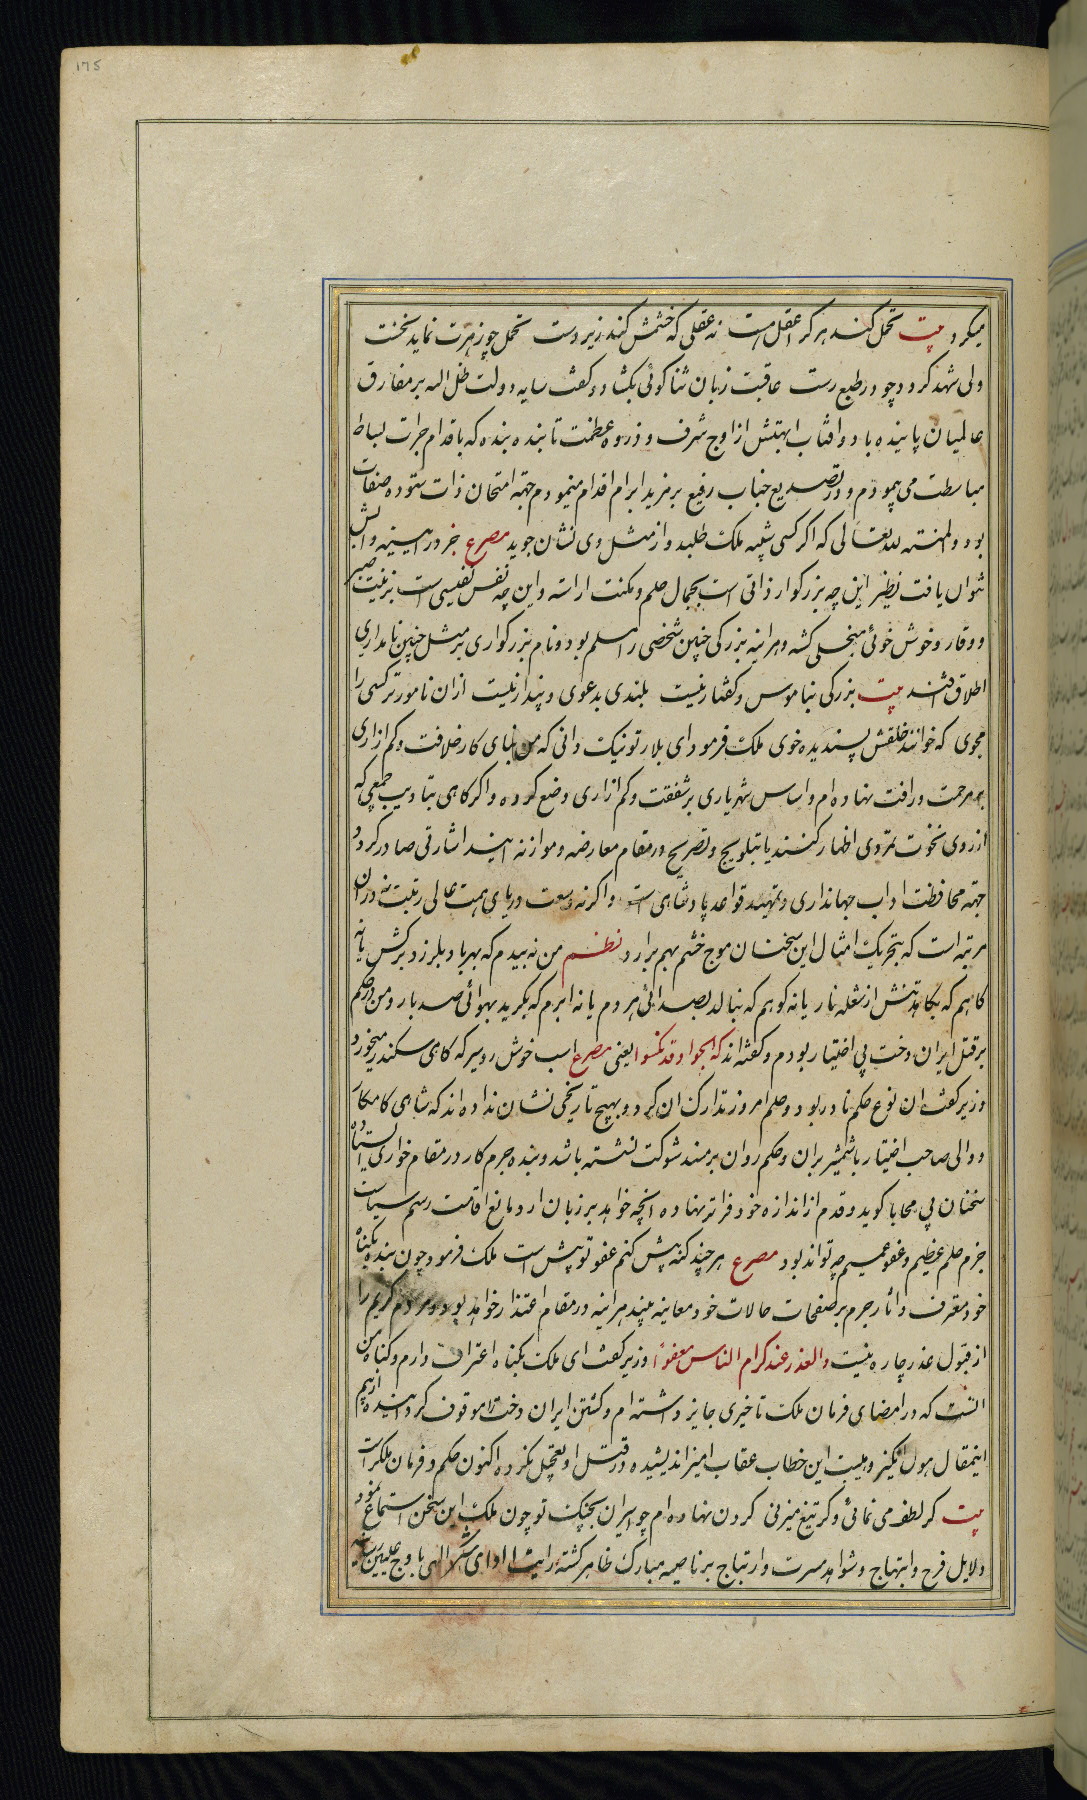 175
میکرد بیت تحمل کند هر کرا عقل هست نه عقلی که خشمش کند زیردست تحمل چو زهرت نماید نخست
ولی شهد کردد چو در طبع رست عاقبت زبان ثنا کوئی بکشاد و کفت سایه دولت ظل اله بر مفارق
عالمیان پاینده باد و افتاب ابهتش از اوج شرف و ذروه عظمت تابنده بنده که باقدام جرات بساط
مباسطت می پیمودم و در تصدیع جناب رفیع بر مزید ابرام اقدام مینمودم جهة امتحان ذات ستوده صفات
بود و المنته لله تعالی که اکر کسی شبیه ملک طلبد و از مثل وی نشان جوید مصرع جز در ایینه و ابش
نتوان یافت نظیر این چه بزرکوار ذاتی است بجمال حلم و مکنت اراسته و این چه نفس نفیسی است بزینت صبر
و وقار و خوش خوئی متجلی کشته و هراینه بزرکی چنین شخصی را مسلم بود و نام بزرکواری بر مثل چنین نامداری
اطلاق افتد بیت بزرکی بناموس و کفتار نیست بلندی بدعوی و پندار نیست ازان نامورتر کسی را
مجوی که خوانند خلقش پسندیده خوی ملک فرمود ای بلار تو نیک دانی که من بنای کار خلافت و کم ازاری
بر مرحمت و رافت نهاده ام و اساس شهریاری بر شفقت و کم ازاری وضع کرده و اکر کاهی بتادیب جمعی که
از روی نخوت تمردی اظهار کنند یا بتلویح و تصریح در مقام معارضه و موازنه ایند اشارتی صادر کردد
جهته محافظت اداب جهانداری و تمهید قواعد پادشاهی است و اکرنه وسعت دریای همت عالی رتبت نه دران
مرتبه است که بتحریک امثال این سخنان موج خشم بهم برارد نظم من نه بیدم که بهر باد بلرزد برکش یا نه
کاهم که بکاهد تنش از شعله نار یا نه کوهم که بنالد بصدائی هر دم یا نه ابرم که بکرید بهوائی صد بار و من در حکم
بر قتل ایران دخت بی اختیار بودم و کفته اند که الجواد قد یکبوا یعنی مصرع اسب خوش رو نیز که کاهی سکندر میخورد
وزیر کفت ان نوع حکم نادر بود و حلم امروز تدارک ان کرد و بهیچ تاریخی نشان نداده اند که شاهی کامکار
و والی صاحب اختیار باشمشیر بران و حکم روان بر مسند شوکت نشسته باشد و بنده مجرم کار در مقام خواری ایستاده
سخنان بی محابا کوید و قدم از اندازه خود فراتر نهاده انچه خواهد بر زبان ارد و مانع اقامت رسم سیاست
جز م حلم عظیم و عفو عمیم چه تواند بود مصرع هر چند کنه بیش کنم عفو تو بیش است ملک فرمود چون بنده بکناه
خود معترف و اثار جرم بر صفحات حالات خود معاینه بیند هراینه در مقام اعتذار خواهد بود و مردم کریم را
از قبول عذر چاره نیست والعذر عند کرام الناس معفواً وزیر کفت ای ملک بکناه اعتراف دارم و کناه من
انست که در امضای فرمان ملک تاخیری جایز داشته ام و کشتن ایران دخت را موقوف کردانیده از بیم
اینمقال هول انکیز و هیبت این خطاب عقاب امیز اندیشیده در قتل او تعجیل نکرده اکنون حکم و فرمان ملکراست
بیت کر لطف می نمائی و کر تیغ میزنی کردن نهاده ام چو اسیران بچنک تو چون ملک این سخن استماع نمود
دلایل فرح و ابتهاج و شواهد مسرت و ارتیاج بر ناصیه مبارک ظاهر کشته رایت ادای شکر الهی باوج علیین